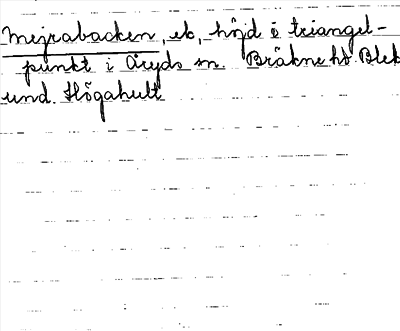 Mejrabacken, eb, höjd o triangel-
punkt i Åryds sn. Bräkne hd. Blek
und. Högahult